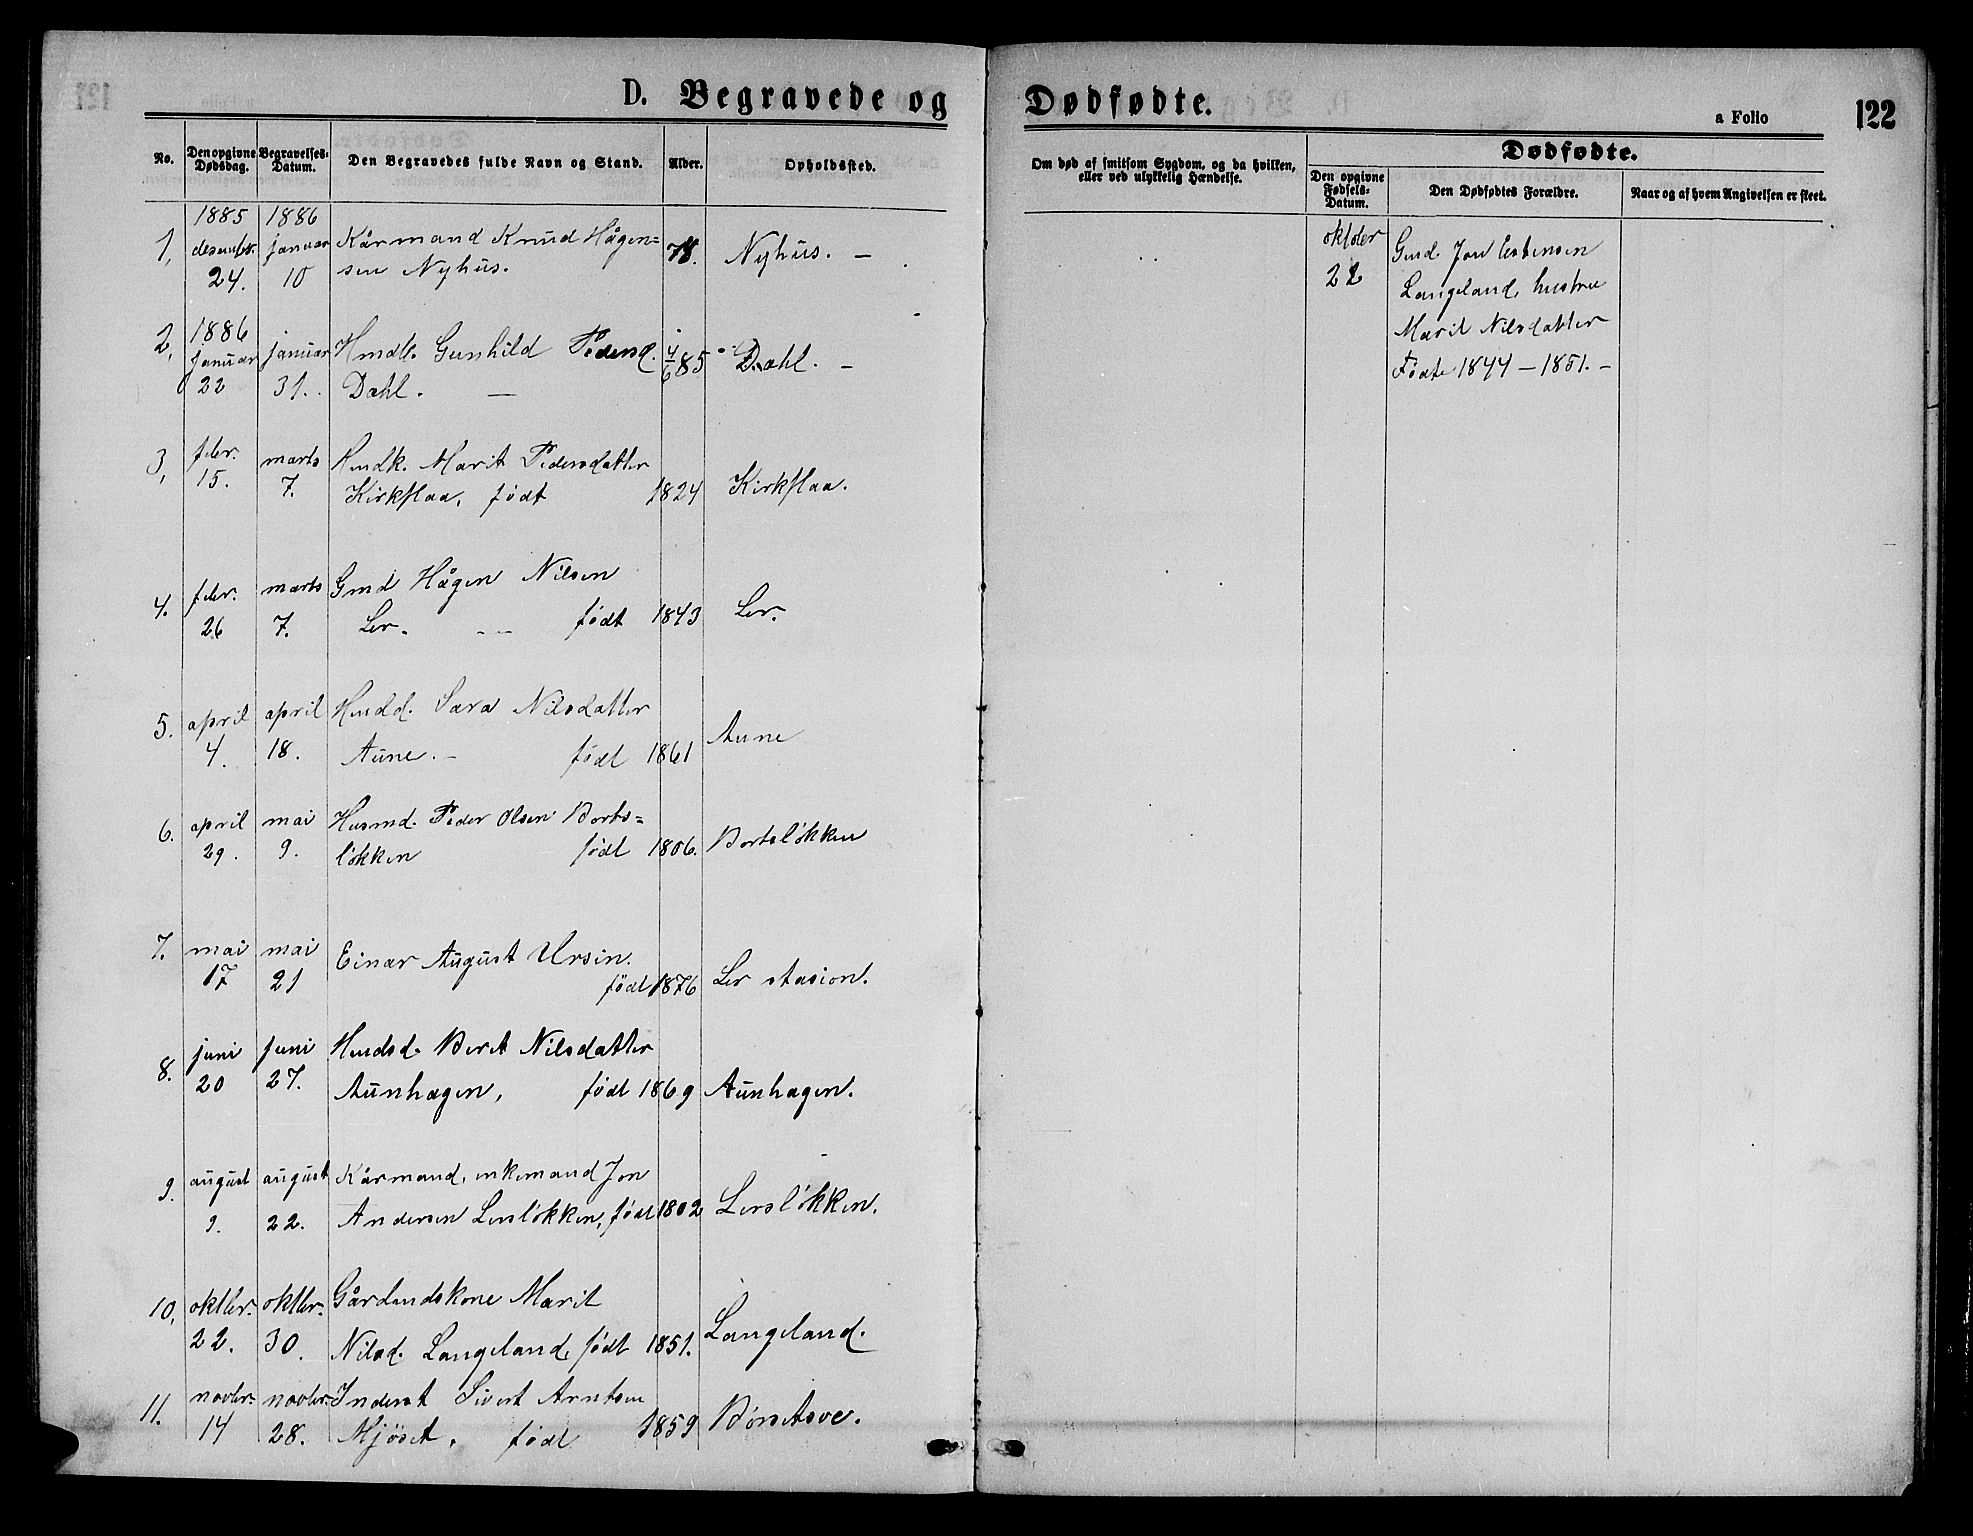 D. Begravede og Dødfødte.
a Folio 122
No. Den opgivne Dødsdag. Begravelses-Datum. Den Begravedes fulde Navn og Stand. Alder. Opholdssted.
Om død af smitsom Sygdom, og da hvilken, eller ved ulykkelig Hændelse.
Dødfødte.
Den opgivne Fødsels-Datum. Den Dødfødtes Forældre. Naar og af hvem Angivelsen er skeet.
1885 1886
1, desembr. januar Kårmand Knud Hågen= 78. Nyhus. —
24. 10 sen Nyhus.
1886
2, januar januar Gunhild Pedersd. 4/6 85 Dahl. —
22 31. Dahl. —
3, febr. marts Marit Pedersdatter
15. 7. Kirkflaa, født 1824 Kirkflaa.
4. febr. marts Gmd Hågen Nilsen
26 7. Ler. — født 1843 Ler.
5. april april Sara Nilsdatter
4. 18. Aune. — født 1861 Aune
6. april mai Husmd. Peder Olsen Borts=
29. 9. løkken født 1806. Bortsløkken
7. mai mai Einar August Ursin.
17 21 født 1876 Ler stasion.
8. juni juni Berit Nilsdatter
20 27. Aunhagen, født 1869 Aunhagen.
9. august august Kårmand, enkemand Jon
9. 22. Andersen Lersløkken, født 1802 Lersløkken.
10, oktbr. oktbr. Gårdmdskone Marit
22. 30. Nilsd. Langeland, født 1851. Langeland.
11. novbr. novbr. Inderst Sivert Arntsen
14 28. Mjøset, født 1859 Børsetsve.
oktober Gmd. Jon Estensen
22 Langeland, hustru
Marit Nilsdatter
Fødte 1844 — 1851. —